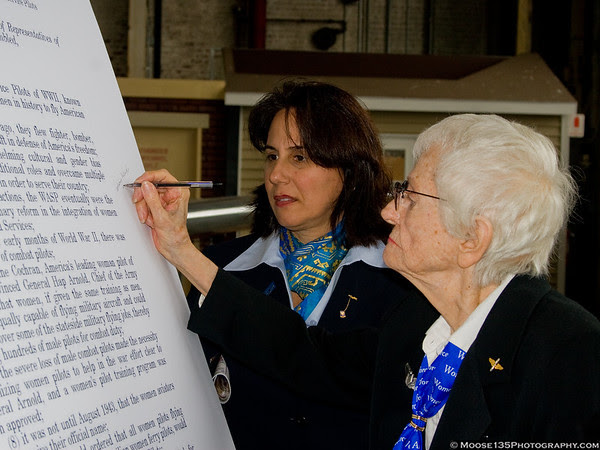 of Representatives of
bled,
ce Pilots of WWII, known
men in history to fly American
ago, they flew fighter, bomber,
ft in defense of America's freedom;
helming cultural and gender bias
itional roles and overcame multiple
n order to serve their country;
ctions, the WASP eventually were the
nary reform in the integration of women
l Services;
early months of World War II, there was
of combat pilots;
ne Cochran, America's leading woman pilot of
vinced General Hap Arnold, Chief of the Army
hat women, if given the same training as men,
qually capable of flying military aircraft and could
over some of the stateside military flying jobs, thereby
hundreds of male pilots for combat duty;
the severe loss of male combat pilots made the necessity
lizing women pilots to help in the war effort clear to
eral Arnold, and a women's pilot training program was
approved;
(8) it was not until August 1943, that the women aviators
ing their official name;
ordered that all women pilots flying
women ferry pilots, would
Women
for
© MOOSE135PHOTOGRAPHY.COM